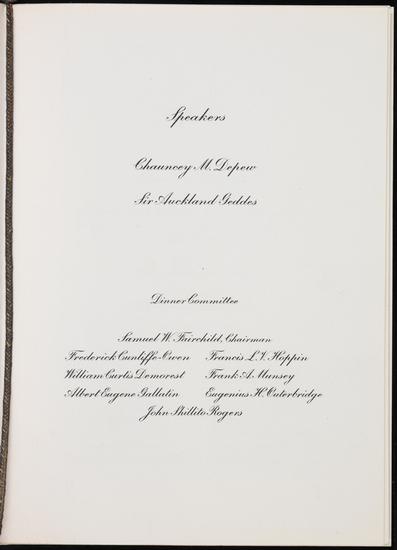 Speakers
Chauncey M. Depew
Sir Auckland Geddes
Dinner Committee
Samuel W. Fairchild, Chairman
Frederick Cunliffe-Owen Francis L.V. Hoppin
William Curtis Demorest Frank A. Munsey
Albert Eugene Gallatin Eugenius H. Outerbridge
John Shillito Rogers